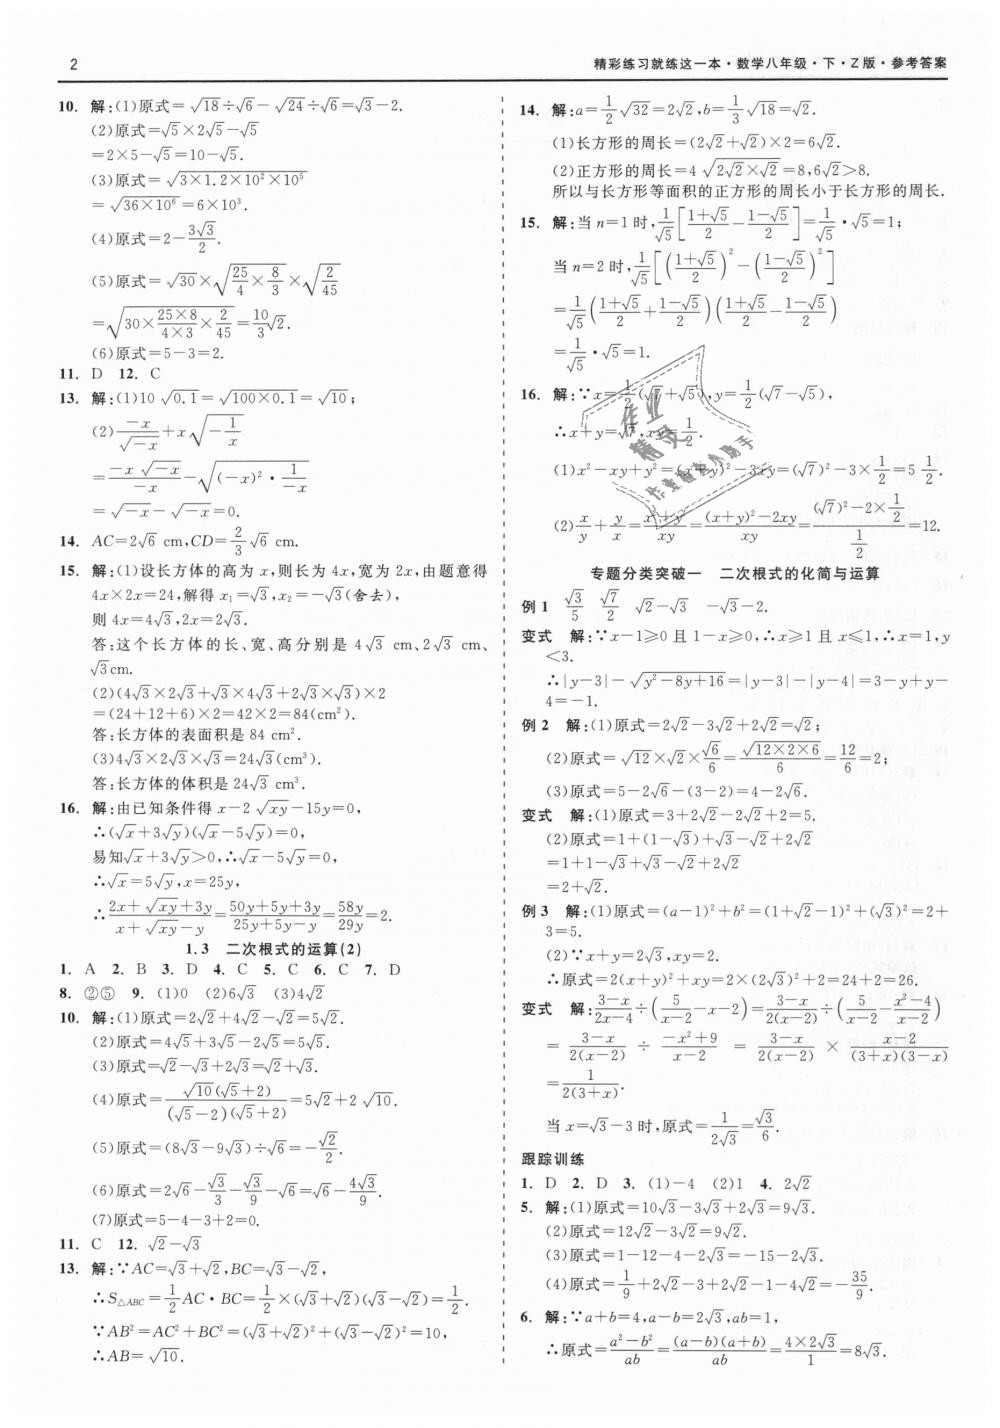 2
精彩练习就练这一本·数学八年级·下·Z版·参考答案
10. 解:(1)原式=√18÷√6-√24÷√6=√3-2.
(2)原式=√5×2√5-√5
=2×5-√5=10-√5.
(3)原式=√(3×1.2×10²×10⁵)
=√(36×10⁶)=6×10³.
(4)原式=2-3√3/2.
(5)原式=√30×√(25/4×8/3)×√(2/45)
=√(30×(25×8)/(4×3)×2/45)=10/3√2.
(6)原式=5-3=2.
11. D 12. C
13. 解:(1)10√0.1=√(100×0.1)=√10;
(2)(-x)/√(-x)+x√(-1/x)
=(-x√(-x))/(-x)-√((-x)²·1/(-x))
=√(-x)-√(-x)=0.
14. AC=2√6 cm,CD=2/3√6 cm.
15. 解:(1)设长方体的高为x,则长为4x,宽为2x,由题意得
4x×2x=24,解得x₁=√3,x₂=-√3(舍去),
则4x=4√3,2x=2√3.
答:这个长方体的长、宽、高分别是4√3 cm、2√3 cm、
√3cm.
(2)(4√3×2√3+√3×4√3+2√3×√3)×2
=(24+12+6)×2=42×2=84(cm²).
答:长方体的表面积是84 cm².
(3)4√3×2√3×√3=24√3(cm³).
答:长方体的体积是24√3 cm³.
16. 解:由已知条件得x-2√xy-15y=0,
∴(√x+3√y)(√x-5√y)=0,
易知√x+3√y>0,∴√x-5√y=0,
∴√x=5√y,x=25y,
∴(2x+√xy+3y)/(x+√xy-y)=(50y+5y+3y)/(25y+5y-y)=58y/29y=2.
1.3 二次根式的运算(2)
1. A 2. B 3. D 4. C 5. C 6. C 7. D
8. ②⑤ 9. (1)0 (2)6√3 (3)4√2
10. 解:(1)原式=2√2+4√2-√2=5√2.
(2)原式=4√5+3√5-2√5=5√5.
(3)原式=√2-√3+2√3=√2+√3.
(4)原式=√10(√5+2)/((√5-2)(√5+2))=5√2+2√10.
(5)原式=(8√3-9√3)÷√6=-√2/2.
(6)原式=2√6-√3/3-√3/9-√6=√6-4√3/9.
(7)原式=5-4-3+2=0.
11. C 12. √2-√3
13. 解:∵AC=√3+√2,BC=√3-√2,
∴S△ABC=1/2AC·BC=1/2×(√3+√2)(√3-√2)=1/2.
∵AB²=AC²+BC²=(√3+√2)²+(√3-√2)²=10,
∴AB=√10.
14. 解:a=1/2√32=2√2,b=1/3√18=√2.
(1)长方形的周长=(2√2+√2)×2=6√2.
(2)正方形的周长=4√(2√2×√2)=8,6√2>8.
所以与长方形等面积的正方形的周长小于长方形的周长.
15. 解:当n=1时,1/√5[(1+√5)/2-(1-√5)/2]=1/√5·√5=1;
当n=2时,1/√5[((1+√5)/2)²-((1-√5)/2)²]
=1/√5((1+√5)/2+(1-√5)/2)((1+√5)/2-(1-√5)/2)
=1/√5·√5=1.
16. 解:∵x=1/2(√7+√5),y=1/2(√7-√5),
∴x+y=√7,xy=1/2.
(1)x²-xy+y²=(x+y)²-3xy=(√7)²-3×1/2=5 1/2.
(2)x/y+y/x=(x²+y²)/xy=((x+y)²-2xy)/xy=((√7)²-2×1/2)/(1/2)=12.
专题分类突破一 二次根式的化简与运算
例1 √3/5 √7/2 √2-√3 -√3-2.
变式 解:∵x-1≥0且1-x≥0,∴x≥1且x≤1,∴x=1,y
<3.
∴|y-3|-√(y²-8y+16)=|y-3|-|y-4|=3-y+y-
4=-1.
例2 解:(1)原式=2√2-3√2+2√2=√2;
(2)原式=√12×√2×√6/6=√(12×2×6)/6=12/6=2;
(3)原式=5-2√6-(3-2)=4-2√6.
变式 解:(1)原式=3+2√2-2√2+2=5.
(2)原式=1+(1-√3)+√3-√2+2√2
=1+1-√3+√3-√2+2√2
=2+√2.
例3 解:(1)原式=(a-1)²+b²=(1+√2-1)²+(√3)²=2+
3=5.
(2)∵x+y=2√3,xy=2.
∴原式=2(x+y)²+xy=2×(2√3)²+2=24+2=26.
变式 解:(3-x)/(2x-4)÷(5/(x-2)-x-2)=(3-x)/(2(x-2))÷(5/(x-2)-(x²-4)/(x-2))
=(3-x)/(2(x-2))÷(-x²+9)/(x-2)=(3-x)/(2(x-2))×(x-2)/((3+x)(3-x))
=1/(2(3+x)).
当x=√3-3时,原式=1/(2√3)=√3/6.
跟踪训练
1. D 2. D 3. (1)-4 (2)1 4. 2√2
5. 解:(1)原式=10√3-3√3+2√3=9√3.
(2)原式=12√2-3√2=9√2.
(3)原式=1-12-4-2√3=-15-2√3.
(4)原式=1/9+2√2-3+2√2-1-4√2=-35/9.
6. 解:∵a+b=4,a-b=2√3,ab=1,
∴原式=(a²-b²)/ab=(a-b)(a+b)/ab=(4×2√3)/1=8√3.
作业
精灵
作业检查小助手